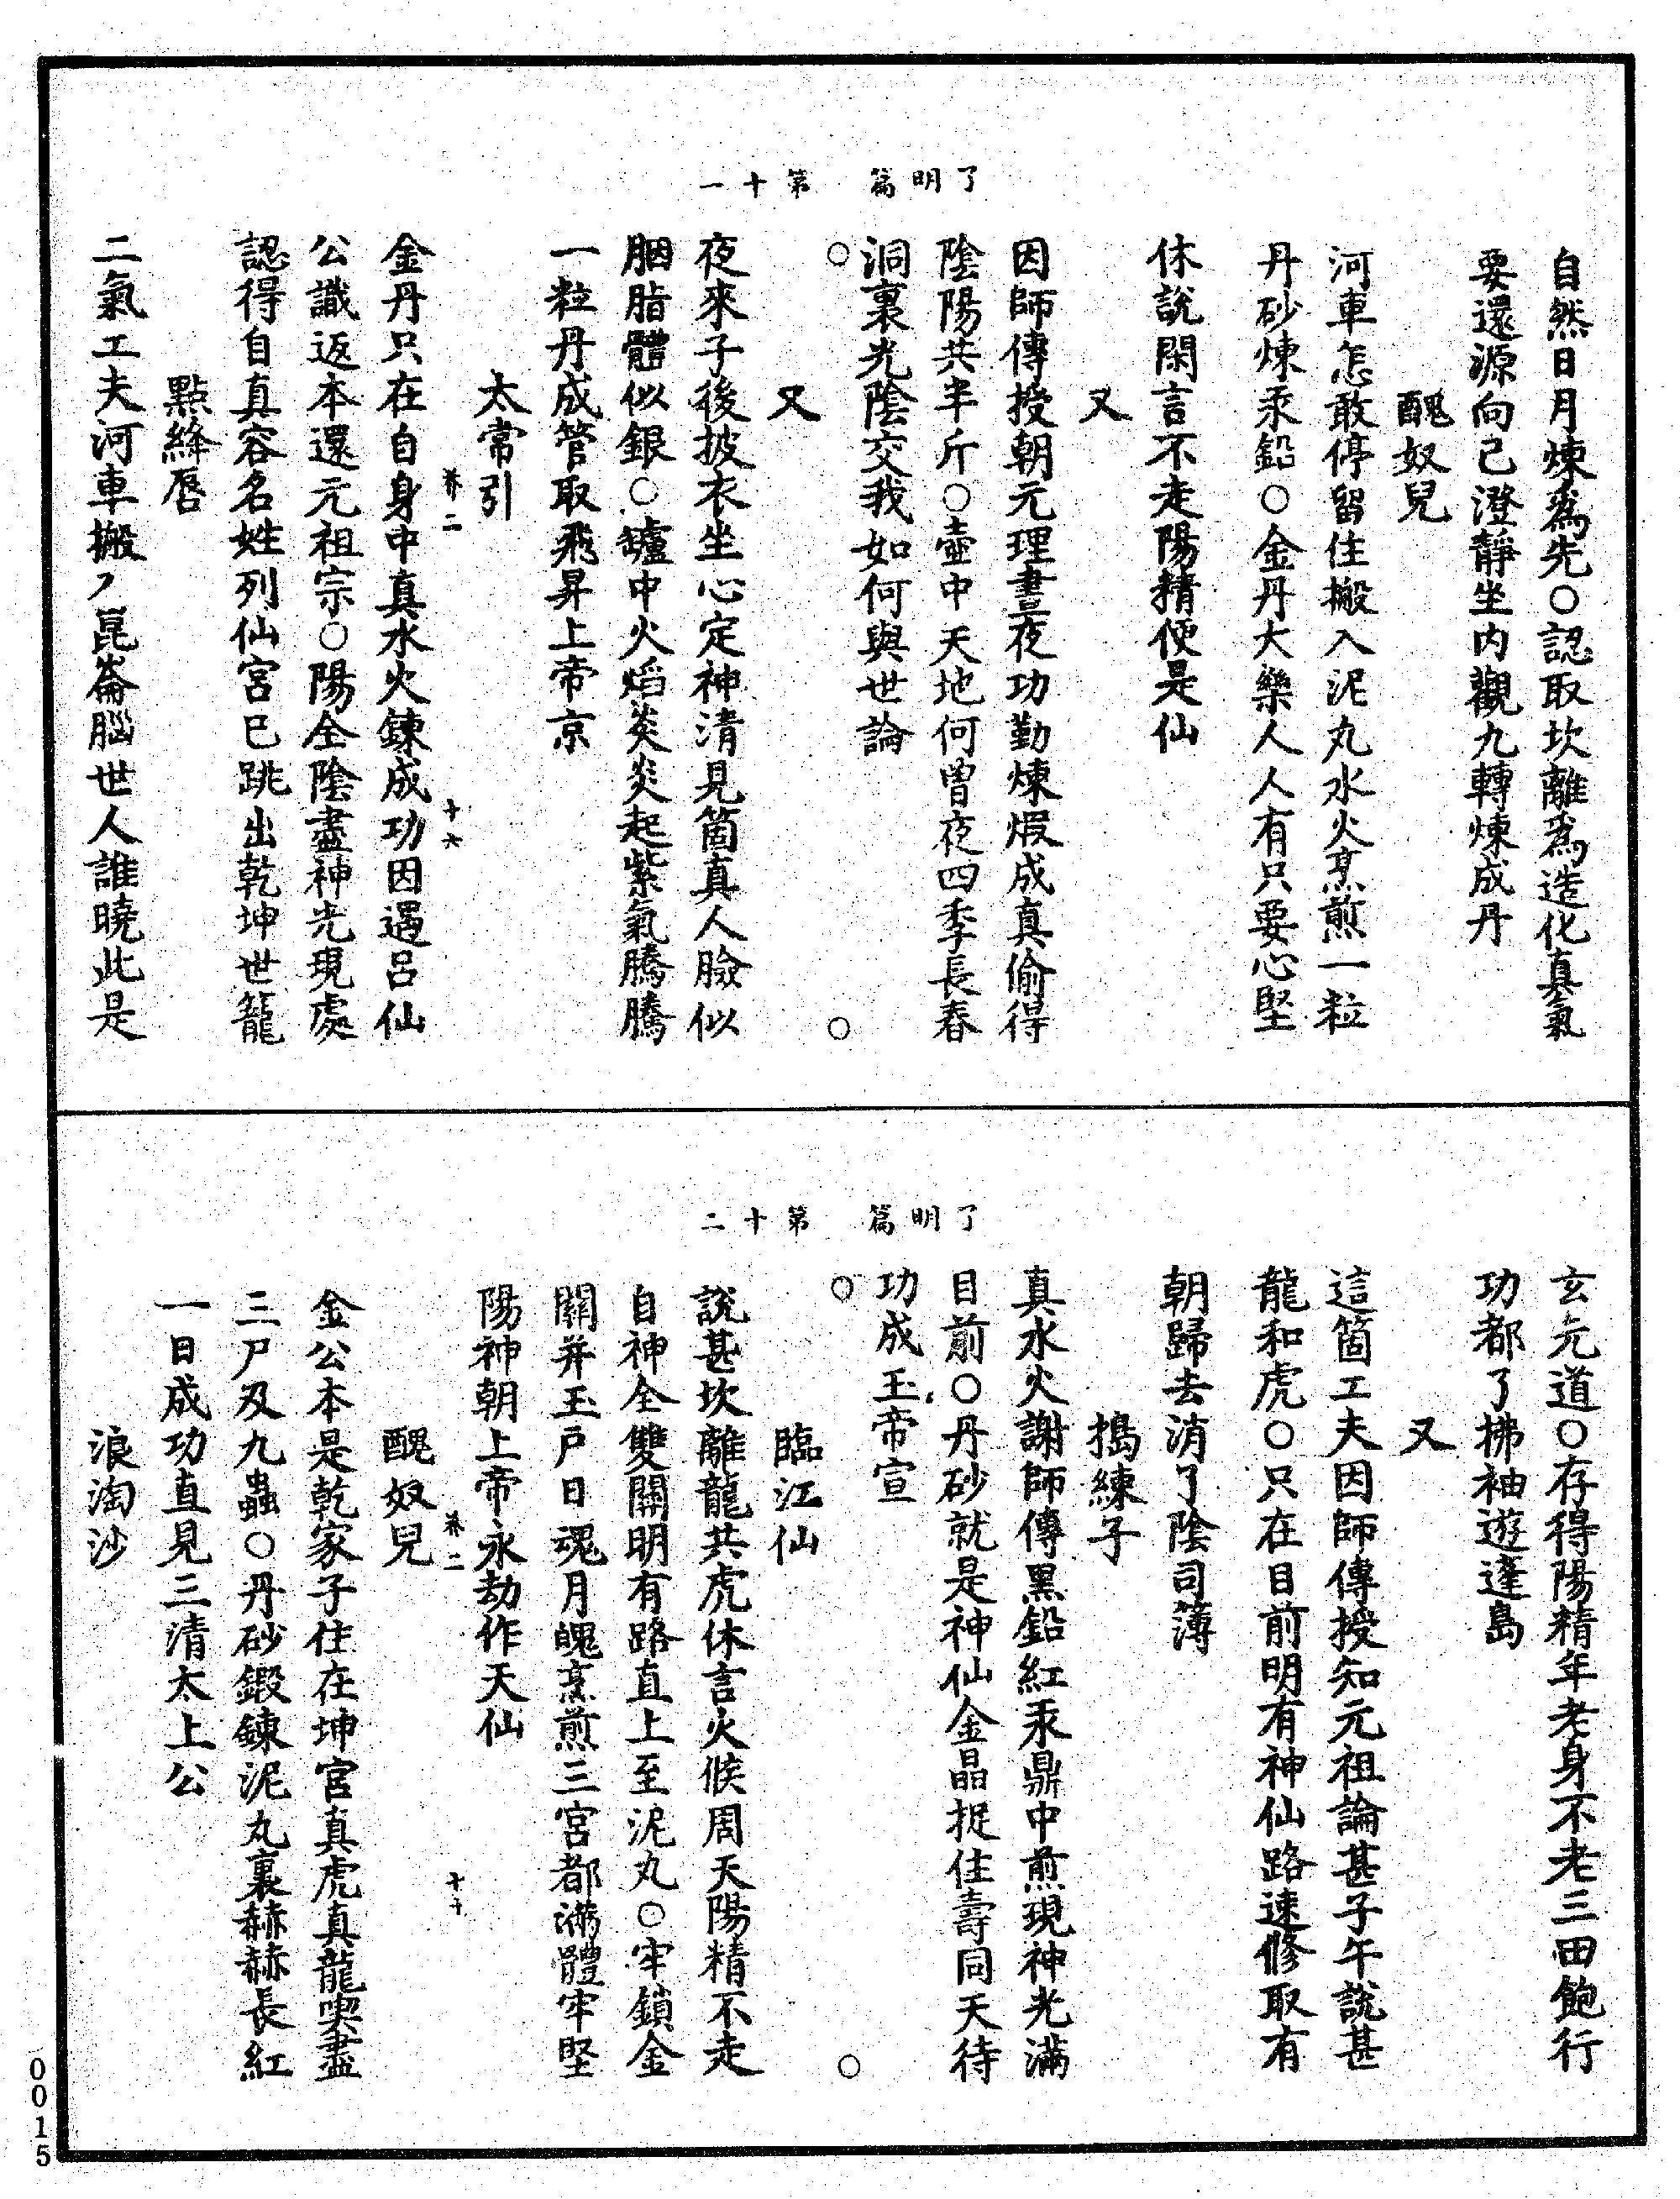 了明篇　第十一
自然日月煉為先〇認取坎離為造化真氣
要還源向己澄靜坐内觀九轉煉成丹
醜奴兒
河車怎敢停留住搬入泥丸水火烹煎一粒
丹砂煉汞鉛〇金丹大樂人人有只要心堅
休說閑言不走陽精便是仙
又
因師傳授朝元理晝夜功勤煉煆成真偷得
陰陽共半斤〇壺中天地何曾夜四季長春
洞裏光陰交我如何與世論
〇　〇
又
夜來子後披衣坐心定神清見箇真人臉似
胭脂體似銀〇罏中火焰炎炎起紫氣騰騰
一粒丹成管取飛昇上帝京
太常引
养二　十六
金丹只在自身中真水火鍊成功因遇呂仙
公識返本還元祖宗〇陽全陰盡神光現處
認得自真容名姓列仙宮已跳出乾坤世籠
點絳唇
二氣工夫河車搬ノ崑崙腦世人誰曉此是
了明篇　第十二
玄元道〇存得陽精年老身不老三田飽行
功都了拂袖遊蓬島
又
這箇工夫因師傳授知元祖論甚子午說甚
龍和虎〇只在目前明有神仙路速修取有
朝歸去消了陰司簿
搗練子
真水火謝師傳黑鉛紅汞鼎中煎現神光滿
目前〇丹砂就是神仙金晶捉住壽同天待
功成玉帝宣
〇　〇
臨江仙
說甚坎離龍共虎休言火候周天陽精不走
自神全雙關明有路直上至泥丸〇牢鎖金
關并玉戶日魂月魄烹煎三宮都滿體牢堅
陽神朝上帝永劫作天仙
养二　十七
醜奴兒
金公本是乾家子住在坤宮真虎真龍喫盡
三尸及九蟲〇丹砂鍛鍊泥丸裏赫赫長紅
一日成功直見三清太上公
浪淘沙
0015